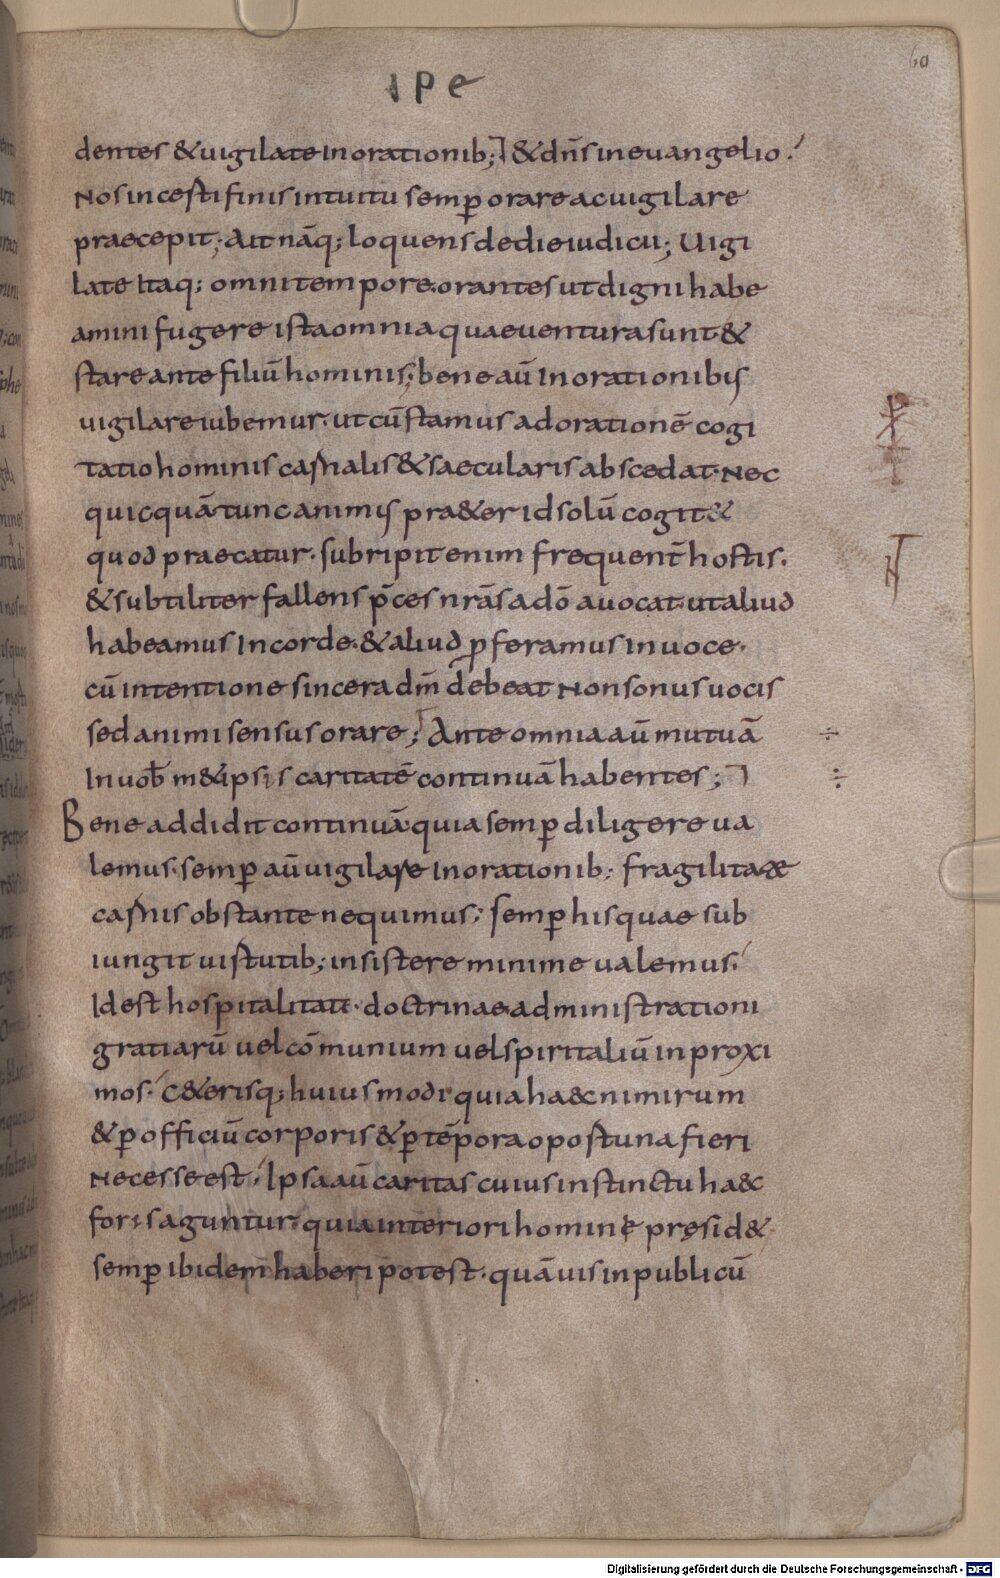 60
I P E
dentes & uigilate in orationib; & dn̄s in euangelio.
Nos incesti finis intuitu semp̱ orare ac uigilare
praecepit; Ait nāq; loquens de die iudicii; Uigi
late Itaq; omni tempore orantes ut digni habe
amini fugere ista omnia quae uentura sunt &
stare ante filiū hominis; bene aū In orationibus
uigilare iubemur. ut cū stamus ad orationē cogi
tatio hominis carnalis & saecularis abscedat. Nec
quicquā tunc animus pra&er id solū cogit&
quod praecatur. subripit enim frequent̄ hostis.
& subtiliter fallens p̄ces nrās a dō auocat. ut aliud
habeamus In corde. & aliud p̱feramus in uoce.
cū intentione sincera dm̄ debeat Non sonus uocis
sed animi sensus orare; Ante omnia aū mutuā
In uob̄ m&ipsis caritatē continuā habentes;
Bene addidit continuā quia semp̱ diligere ua
lemus. semp̱ aū uigilare In orationib; fragilitate
carnis obstante nequimus; semp̱ his quae sub
iungit uirtutib; insistere minime ualemus.
Id est hospitalitati. doctrinae administrationi
gratiarū uel cōmunium uel spiritaliū in proxi
mos. C&erisq; huiusmodi quia haec nimirum
& p̱ officiū corporis & p̱ tēpora oportuna fieri
Necesse est. Ipsa aū caritas cuius instinctu haec
foris aguntur. quia interiori homine pręsid&
semp̱ ibidem haberi potest. quāuis in publicū
Digitalisierung gefördert durch die Deutsche Forschungsgemeinschaft - DFG